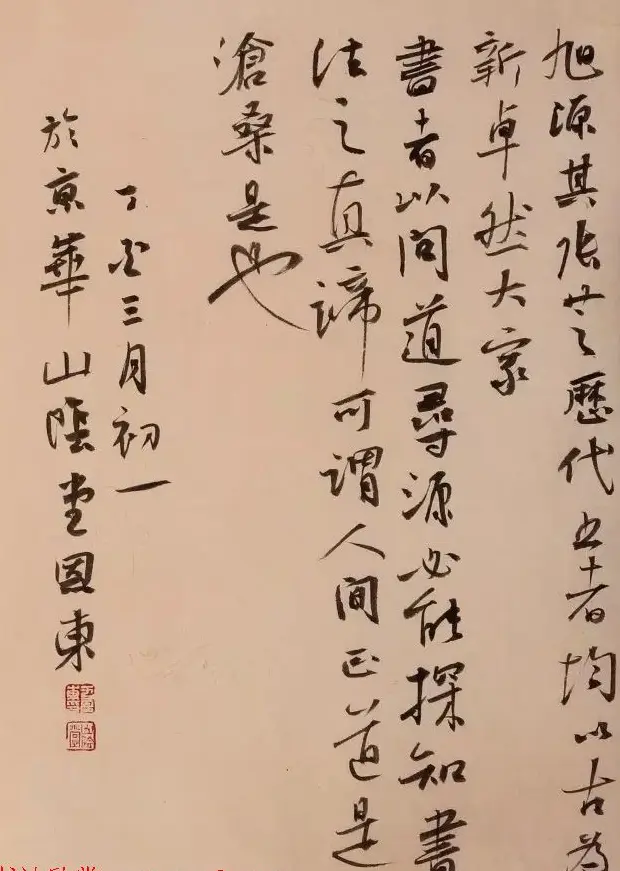 旭源其張芝歷代書者均以古為
新卓然大家
書者以問道尋源必能探知書
法之真諦可謂人間正道是
滄桑是也
丁酉三月初一
於京華山陰堂國東